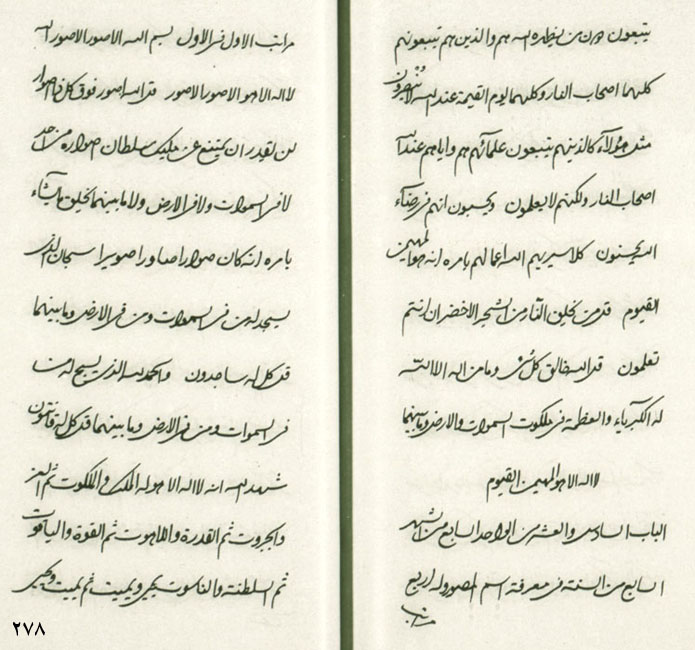 يتبعون وان من يظهره الله هم والذين هم يتبعونهم
كلهما اصحاب النار وكلهما يوم القيمة عند الله لا يشهدون
مثل هؤلاء كالذينهم يتبعون علمائهم هم واياهم عند الله
اصحاب النار ولكنهم لا يعلمون ويحسبون انهم في رضآء
الله يحسنون كلا سيريهم الله اعمالهم بامره انه هو المهيمن
القيوم قد من يخلق النار من الشجر الاخضر ان انتم
تعلمون قل الله خالق كل شئ وما من اله الا الله
له الكبرياء والعظمة في ملكوت السموات والارض وما بينهما
لا اله الا هو المهيمن القيوم
الباب السادس والعشر من الواحد السابع من الشهر
السابع من السنة في معرفة اسم المصور وله اربع
مراتب
مراتب الاول في الاول بسم الله الاصور الاصور الله
لا اله الا هو الاصور الاصور قل الله اصور فوق كل ذا اصوار
لن يقدر ان يمتنع عن مليك سلطان صواره من احد
لا في السموات ولا في الارض ولا ما بينهما يخلق ما يشآء
بامره انه كان صوارا صاورا صويرا سبحان الذي
يسجد له من في السموات ومن في الارض وما بينهما
قل كل له ساجدون والحمد لله الذي يسبح له من
في السموات ومن في الارض وما بينهما قل كل له قانتون
شهد الله انه لا اله الا هو له الملك والملكوت ثم العز
والجبروت ثم القدرة واللاهوت ثم القوة والياقوت
ثم السلطنة والناسوت يحيي ويميت ثم يميت ويحيي
٢٧٨